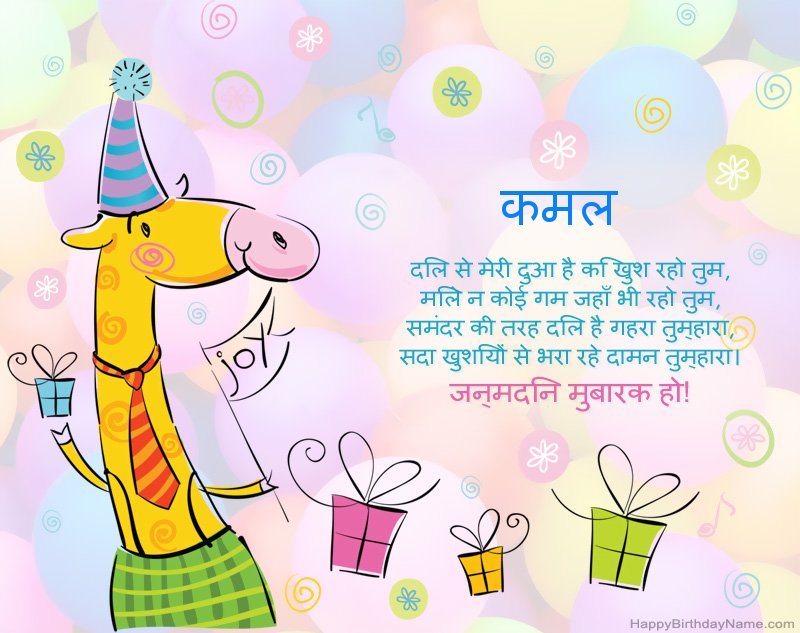 कमल
दिल से मेरी दुआ है कि खुश रहो तुम,
मिले न कोई गम जहाँ भी रहो तुम,
समंदर की तरह दिल है गहरा तुम्हारा,
सदा खुशियों से भरा रहे दामन तुम्हारा।
जन्मदिन मुबारक हो!
joy
HappyBirthdayName.com